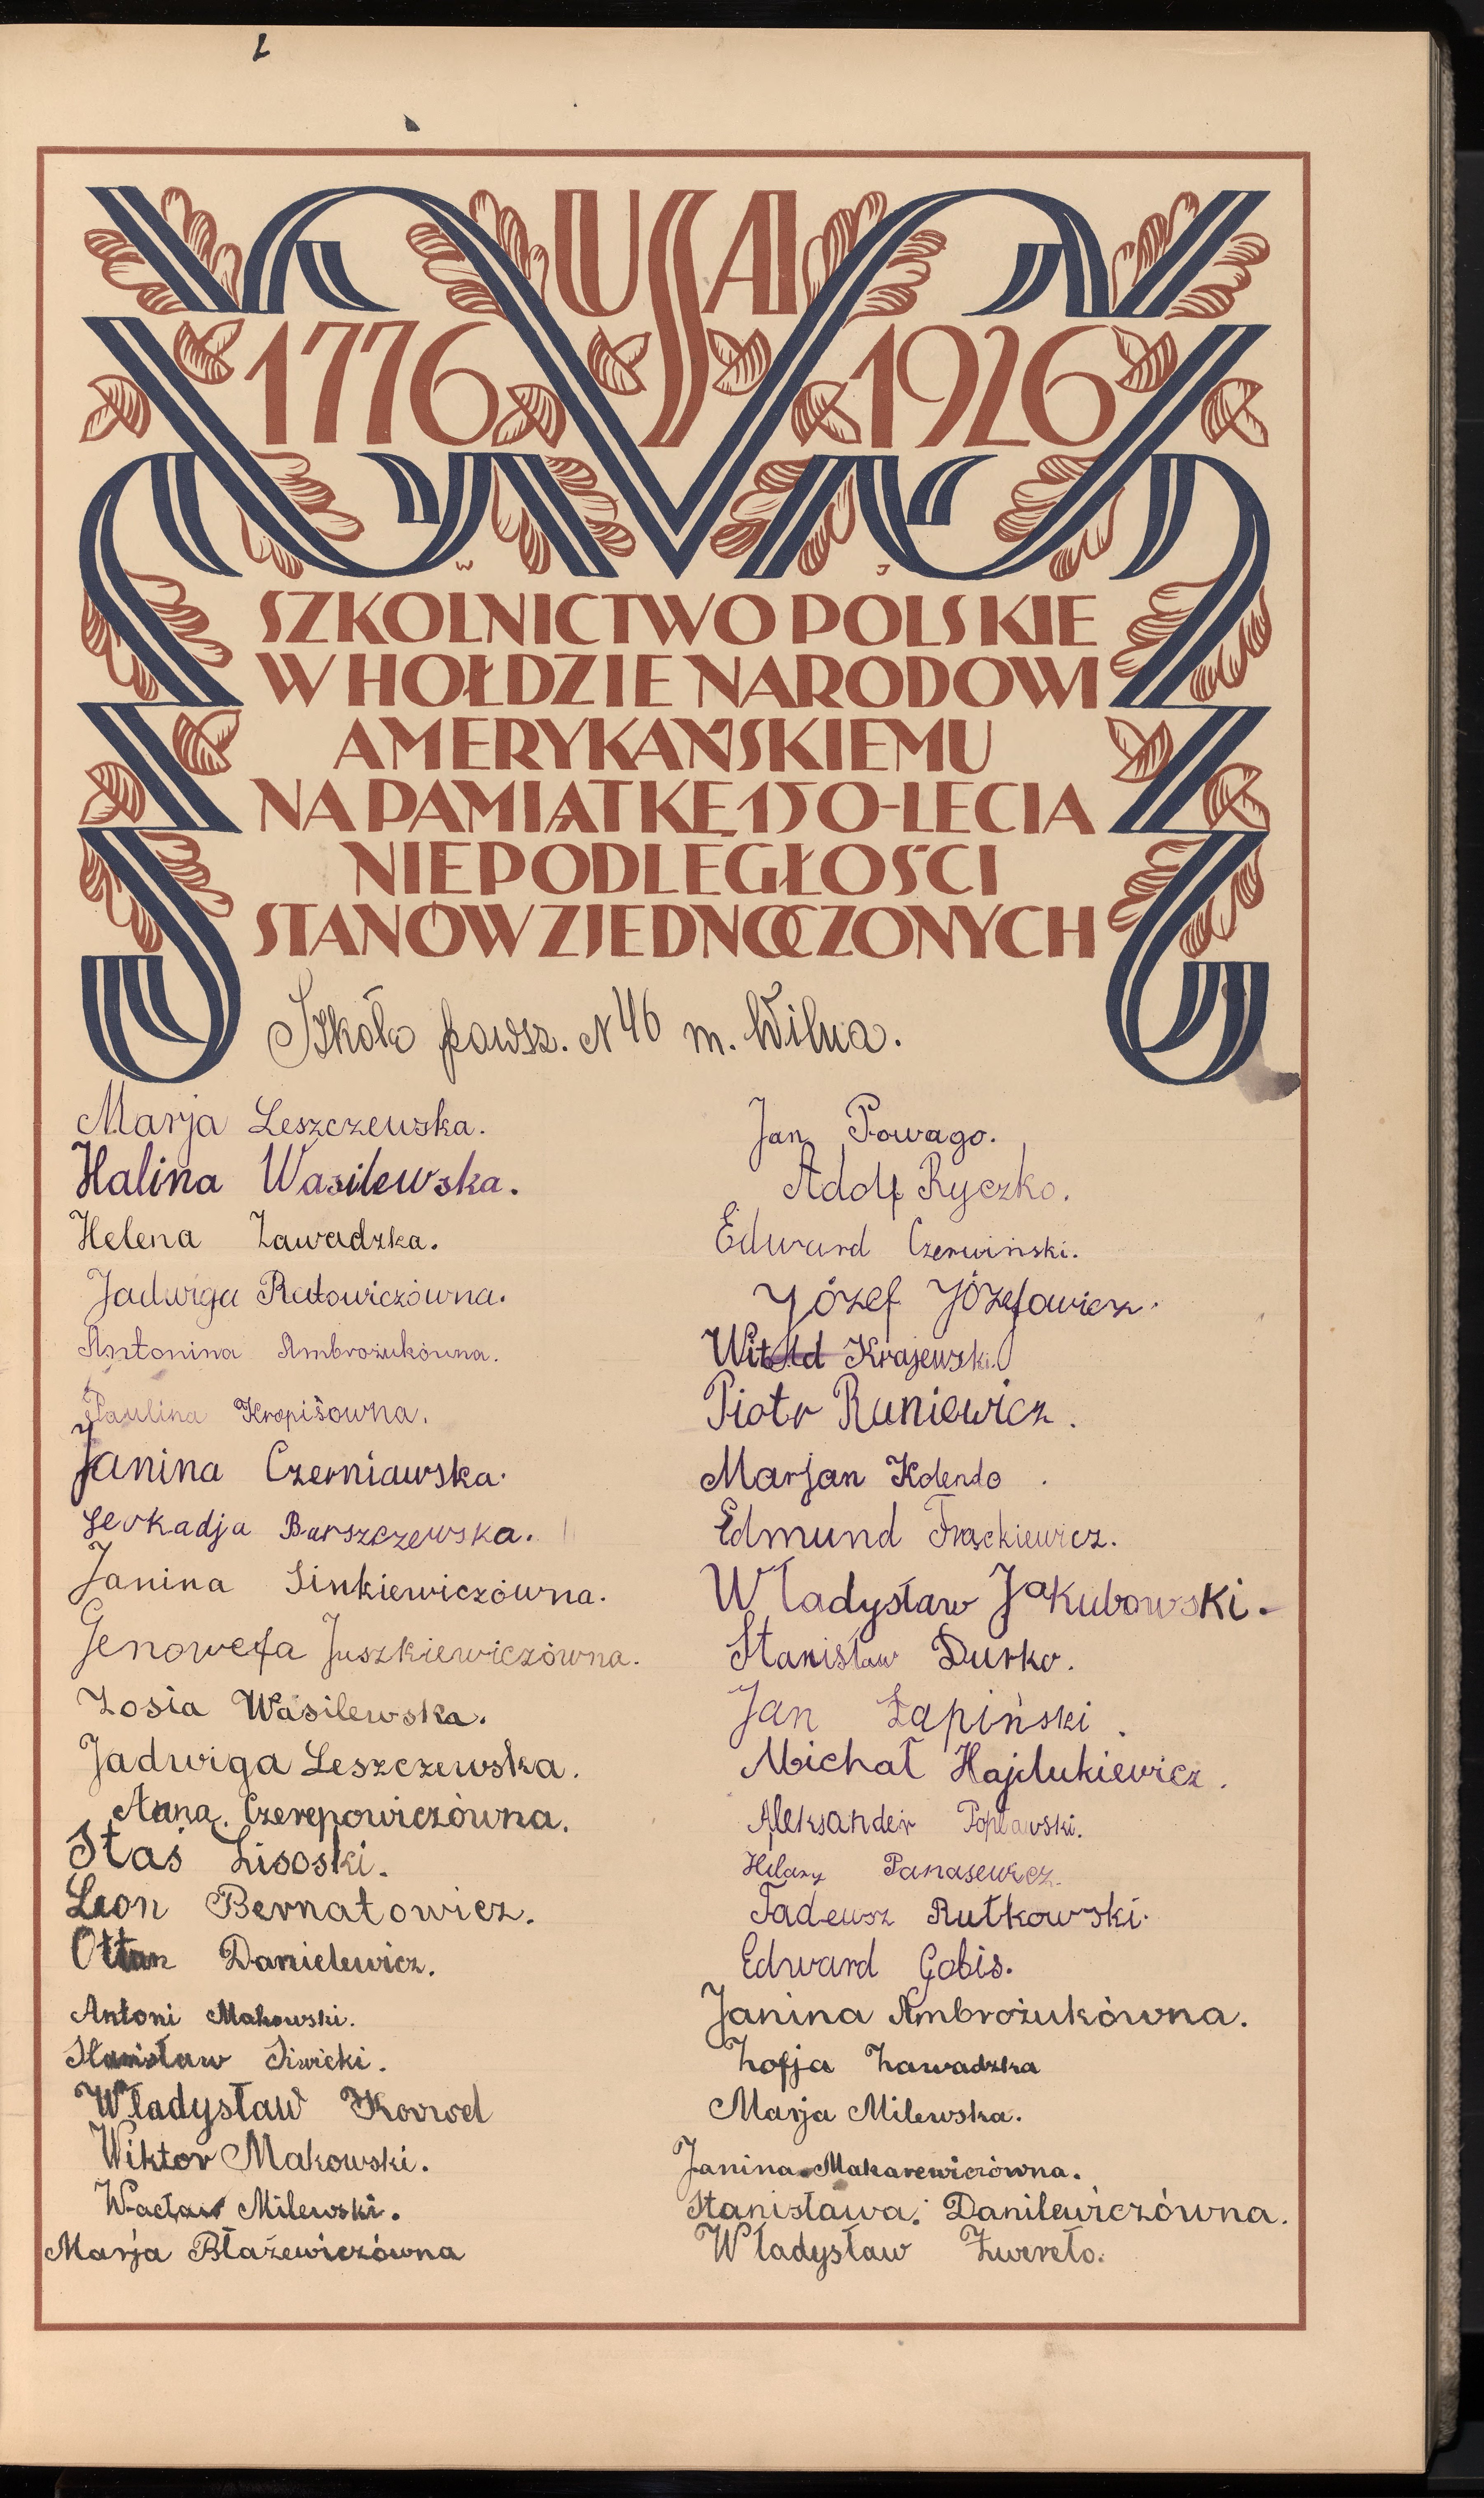 USA
1776 1926
W J
SZKOLNICTWO POLSKIE
W HOŁDZIE NARODOWI
AMERYKAŃSKIEMU
NA PAMIĄTKĘ 150-LECIA
NIEPODLEGŁOŚCI
STANÓW ZJEDNOCZONYCH
Szkoła powsz. N 46 m. Wilna.
Marja Leszczewska.
Halina Wasilewska.
Helena Zawadzka.
Jadwiga Ratowiczówna.
Antonina Ambrożukówna.
Paulina Kropisówna.
Janina Czerniawska.
Leokadja Barszczewska.
Janina Sinkiewiczówna.
Genowefa Juszkiewiczówna.
Zosia Wasilewska.
Jadwiga Leszczewska.
Anna. Czerepowiczówna.
Staś Lisoski.
Leon Bernatowicz.
Danielewicz.
Antoni Makowski.
Stanisław Siwicki.
Władysław
Wiktor Makowski.
Wacław Milewski.
Marja Błażewiczówna
Jan Powago.
Adolf Ryczko.
Edward Czerwiński.
Józef Józefowicz.
Witold Krajewski.
Piotr Runiewicz.
Marjan Kolendo.
Edmund Frąckiewicz.
Władysław Jakubowski.
Stanisław Durko.
Jan Łapiński.
Michał Hajdukiewicz.
Aleksander Popławski.
Hilary Panasewicz.
Tadeusz Rutkowski.
Edward Gobis.
Janina Ambrożukówna.
Zofja Zawadzka
Marja Milewska.
Janina Makarewiczówna.
Stanisława. Danilewiczówna.
Władysław Zwereło.